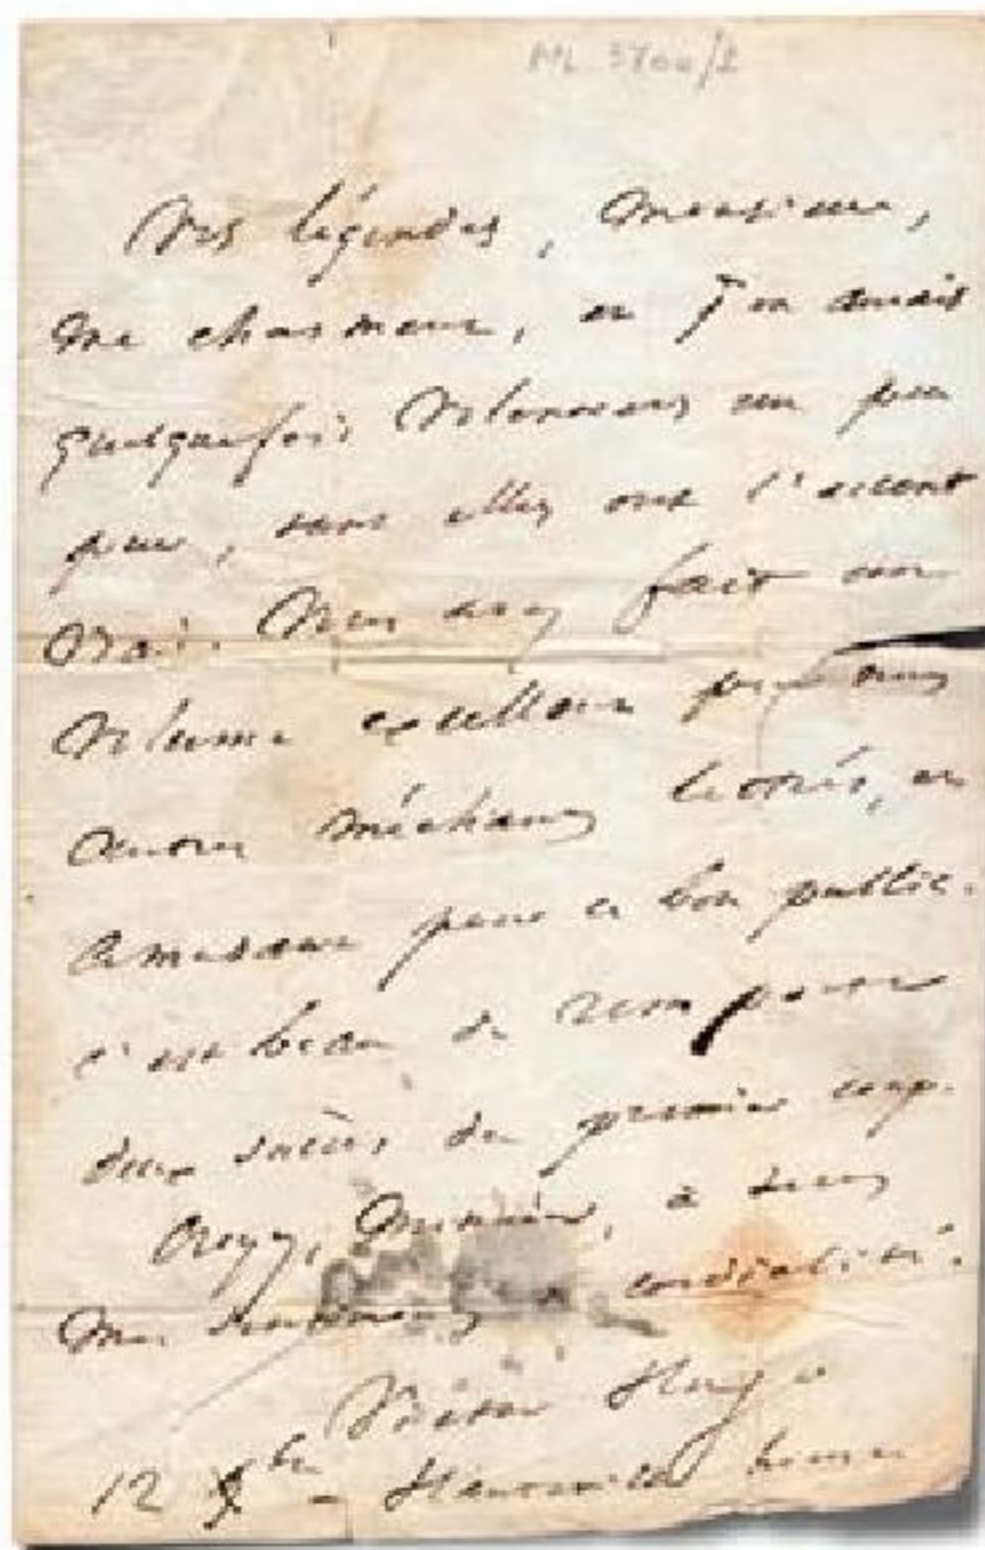 ML 3700/2
Vos légendes, Monsieur,
me charment, et j'en aurais
quelquefois volontiers un peu
peur, tant elles ont l'accent
vrai. Vous avez fait un
volume excellent pour nous
autres méchants lettrés, et
amusant pour ce bon public.
c'est beau de remporter
deux succès du premier coup.
Croyez, Monsieur, à tous
mes sentiments de cordialité.
Victor Hugo
12 Xbre - Hauteville house